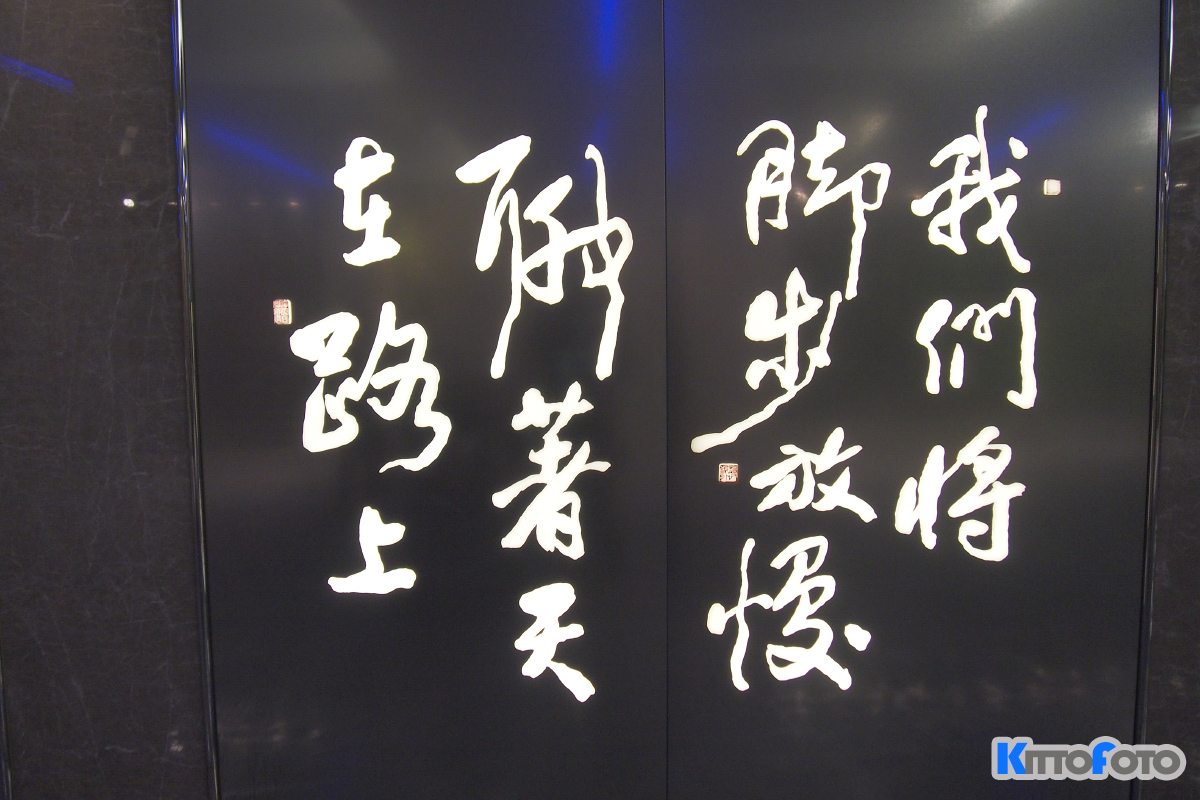 我們將
腳步放慢
聊著天
在路上
KITTOFOTO